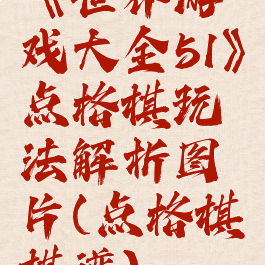 《世界游
戏大全51》
点格棋玩
法解析图
片(点格棋
棋谱)